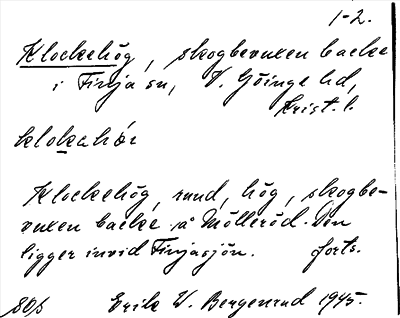 1-2.
Klockehög, skogbevuxen backe
i Finja sn, V. Göinge hd,
Krist. l.
klokahör
Klockehög, rund, hög, skogbe-
vuxen backe på Mölleröd. Den
ligger invid Finjasjön. forts.
Erik W. Bergenrud 1945.